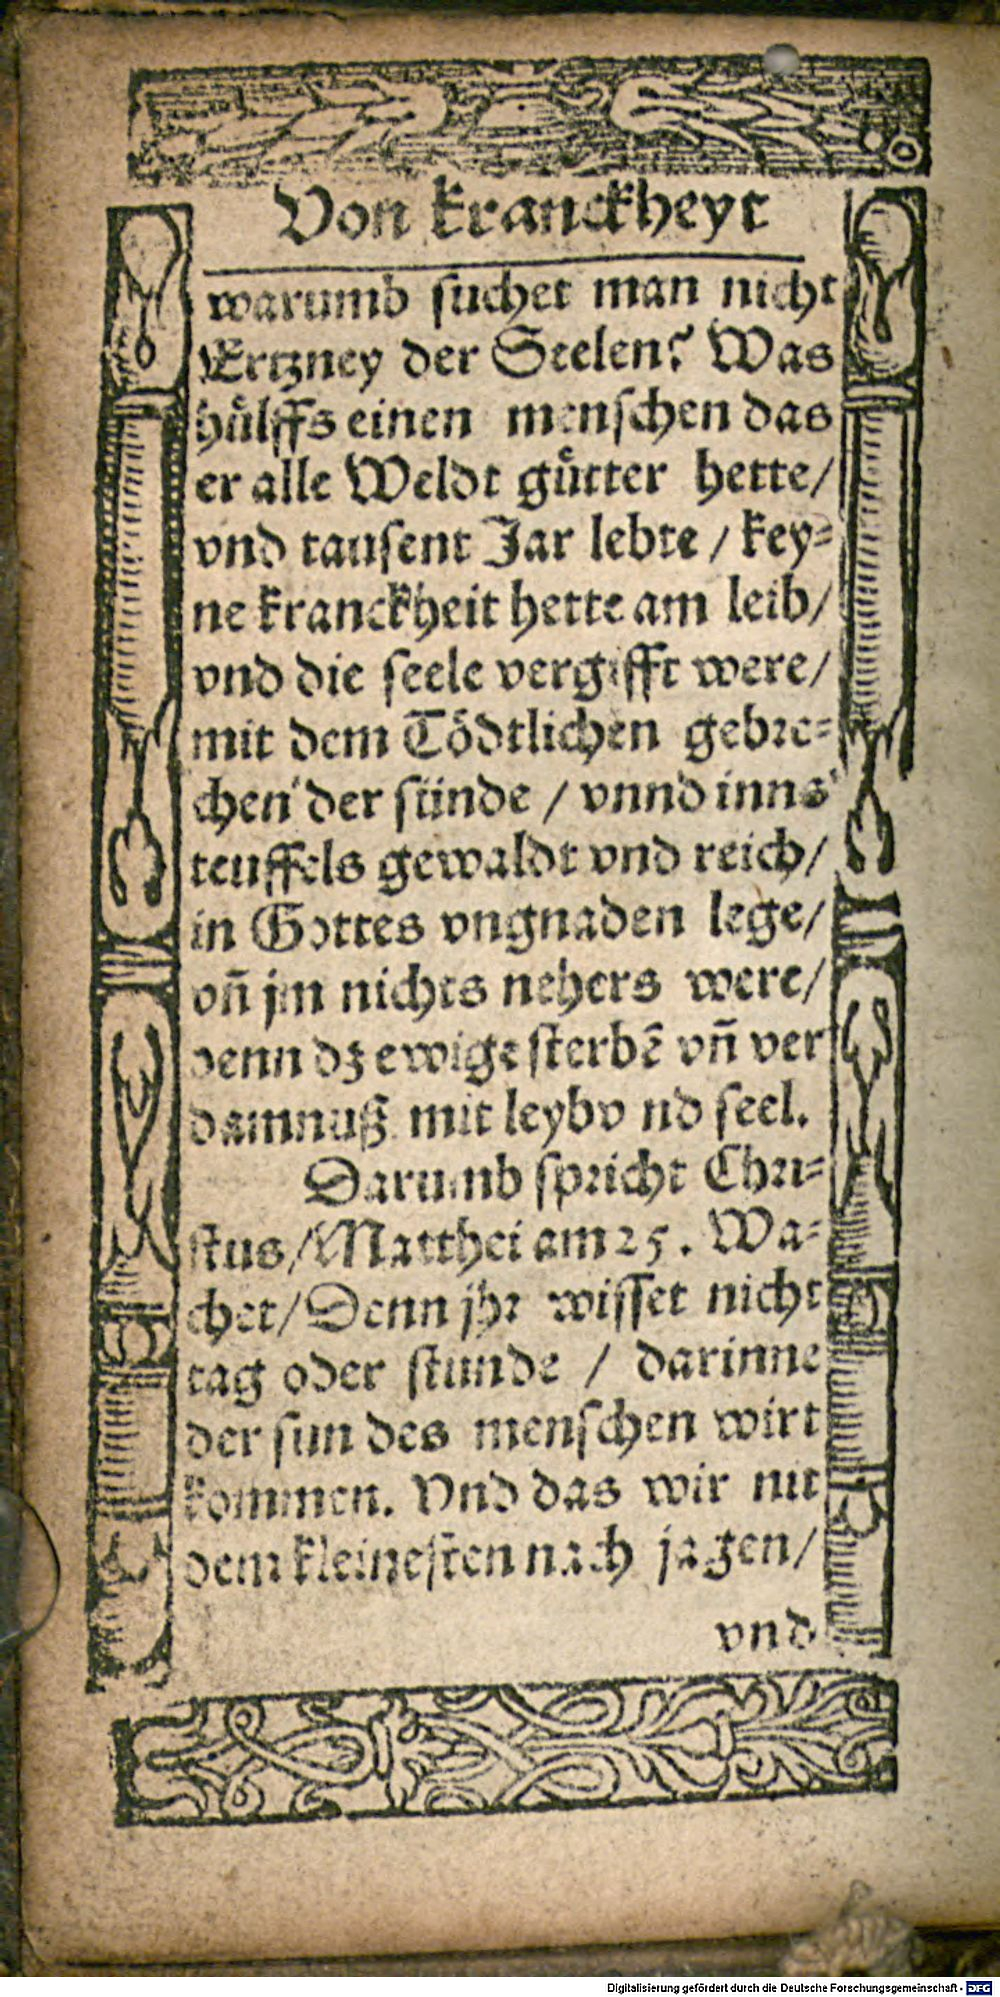 Von kranckheyt
warumb suchet man nicht
Ertzney der Seelen? Was
hülffs einen menschen das
er alle Weldt gütter hette/
vnd tausent Jar lebte / key-
ne kranckheit hette am leib/
vnd die seele vergifft were/
mit dem Tödtlichen gebre-
chen der sünde / vnnd inns
teuffels gewaldt vnd reich/
in Gottes vngnaden lege/
vñ jm nichts nehers were/
denn dz ewige sterbē vñ ver
damnuß mit leybv nd seel.
Darumb spricht Chri-
stus/Matthei am 25. Wa-
chet/Denn jhr wisset nicht
tag oder stunde / darinne
der sun des menschen wirt
kommen. Vnd das wir nit
dem kleinesten nach jagen/
vnd
Digitalisierung gefördert durch die Deutsche Forschungsgemeinschaft - DFG